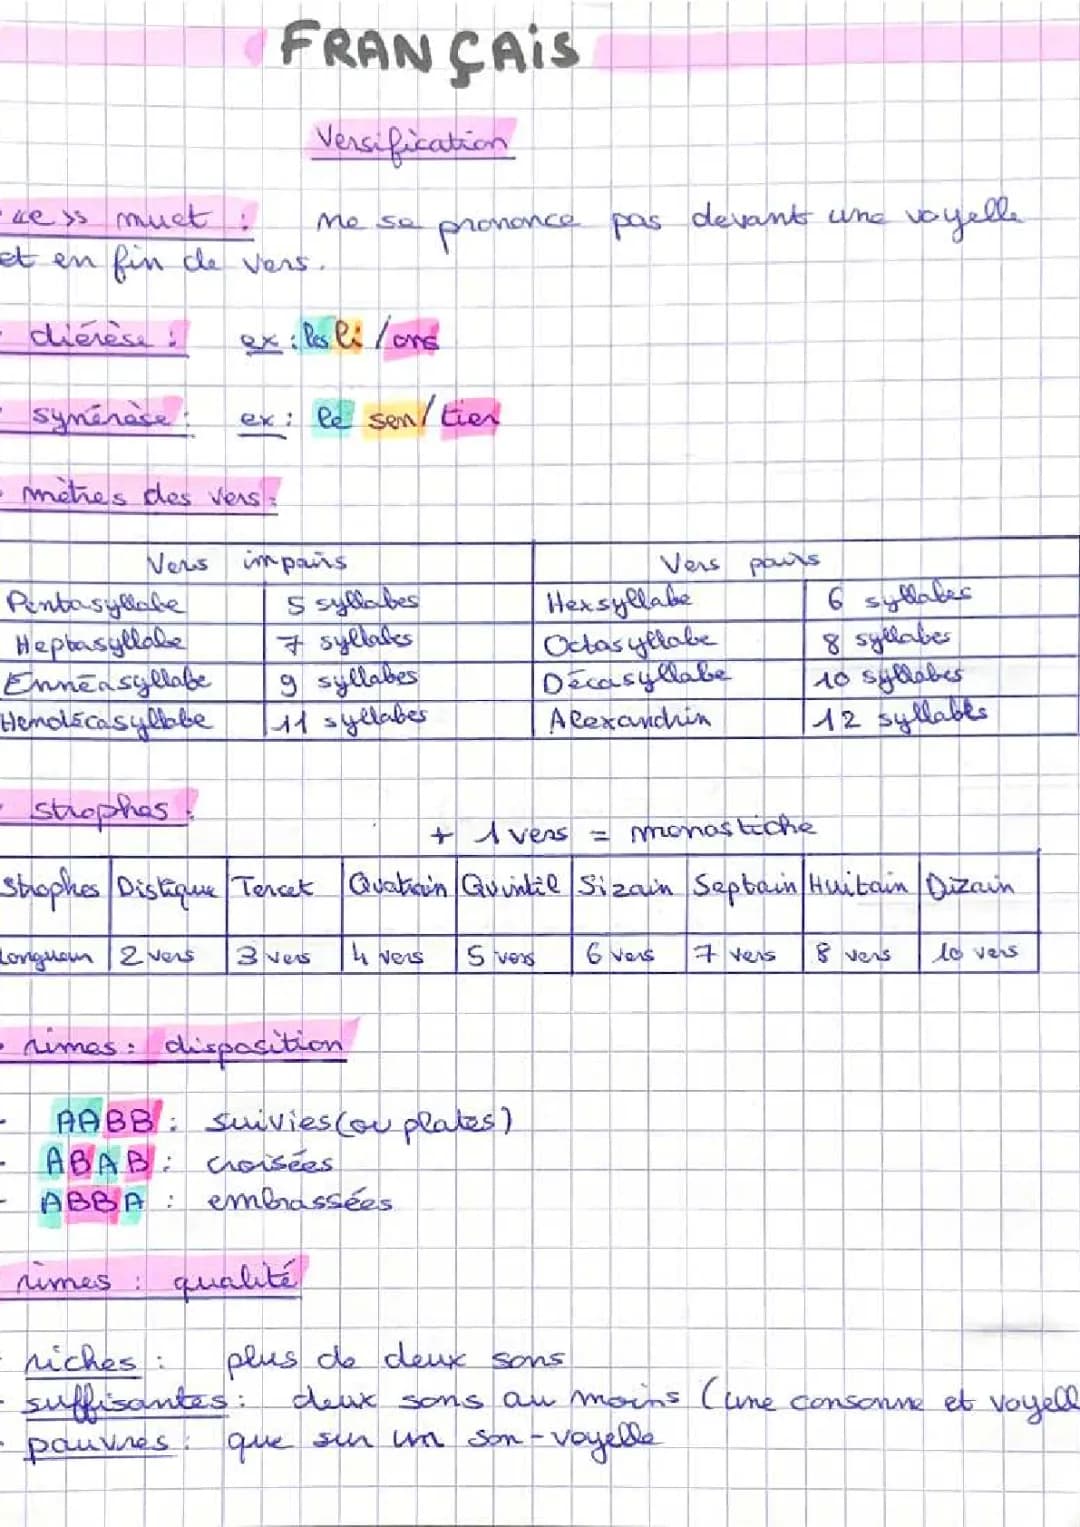 FRANÇAiS
Versification
«e» muet : ne se prononce pas devant une voyelle
et en fin de vers.
diérèse : ex : les li/ons
synérèse : ex : le sen/tier
mètres des vers :
Vers impairs Vers pairs
Pentasyllabe 5 syllabes Hexsyllabe 6 syllabes
Heptasyllabe 7 syllabes Octasyllabe 8 syllabes
Ennéasyllabe 9 syllabes Décasyllabe 10 syllabes
Hendécasyllabe 11 syllabes Alexandrin 12 syllabes
strophes :
+ 1 vers = monostiche
Strophes Distique Tercet Quatrain Quintil Sizain Septain Huitain Dizain
Longueur 2 vers 3 vers 4 vers 5 vers 6 vers 7 vers 8 vers 10 vers
- rimes : disposition
- AABB : suivies (ou plates)
- ABAB : croisées
- ABBA : embrassées
rimes : qualité
- riches : plus de deux sons
- suffisantes : deux sons au moins (une consonne et voyell
- pauvres : que sur un son-voyelle